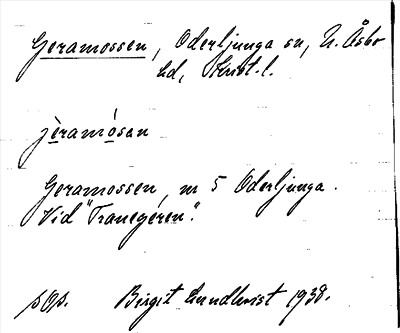 Geramossen, Oderljunga sn, N. Åsbo
hd, Krist. l.
jèramósan
Geramossen, m 5 Oderljunga.
Vid "Tranegéren".
pOp. Birgit Lundkvist 1938.